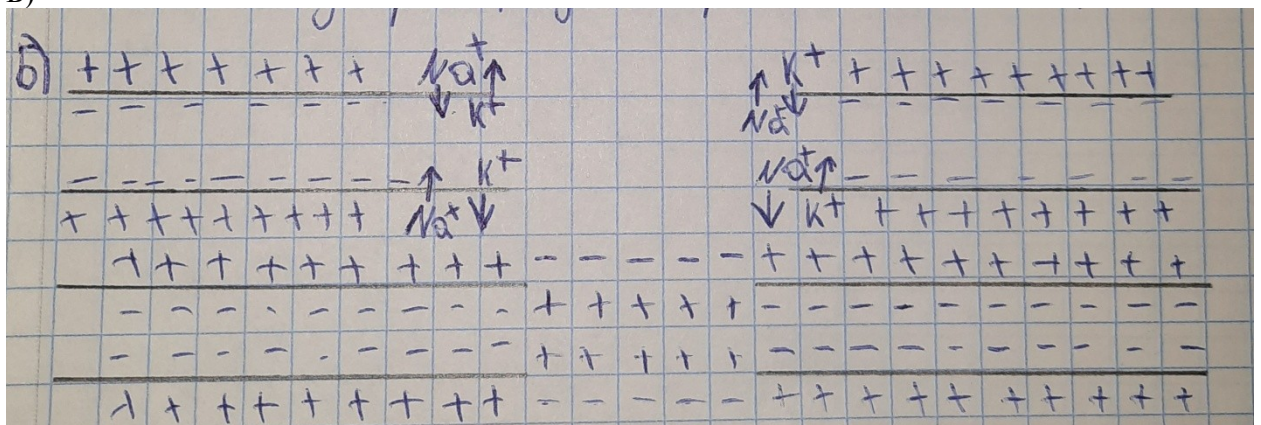 б) + + + + + + + Na⁺ ↑ ↑ K⁺ + + + + + + + + +
− − − − − − ↓ K⁺ Na⁺ ↓ − − − − − −
− − − − − − − − − ↑ K⁺ Na⁺ ↑ − − − − − −
+ + + + + + + + + Na⁺ ↓ ↓ K⁺ + + + + + + + +
+ + + + + + + + + − − − − − + + + + + + + + + +
− − − − − − − − − + + + + + − − − − − − − − − −
− − − − − − − − − + + + + + − − − − − − − − − −
+ + + + + + + + + − − − − − + + + + + + + + + +